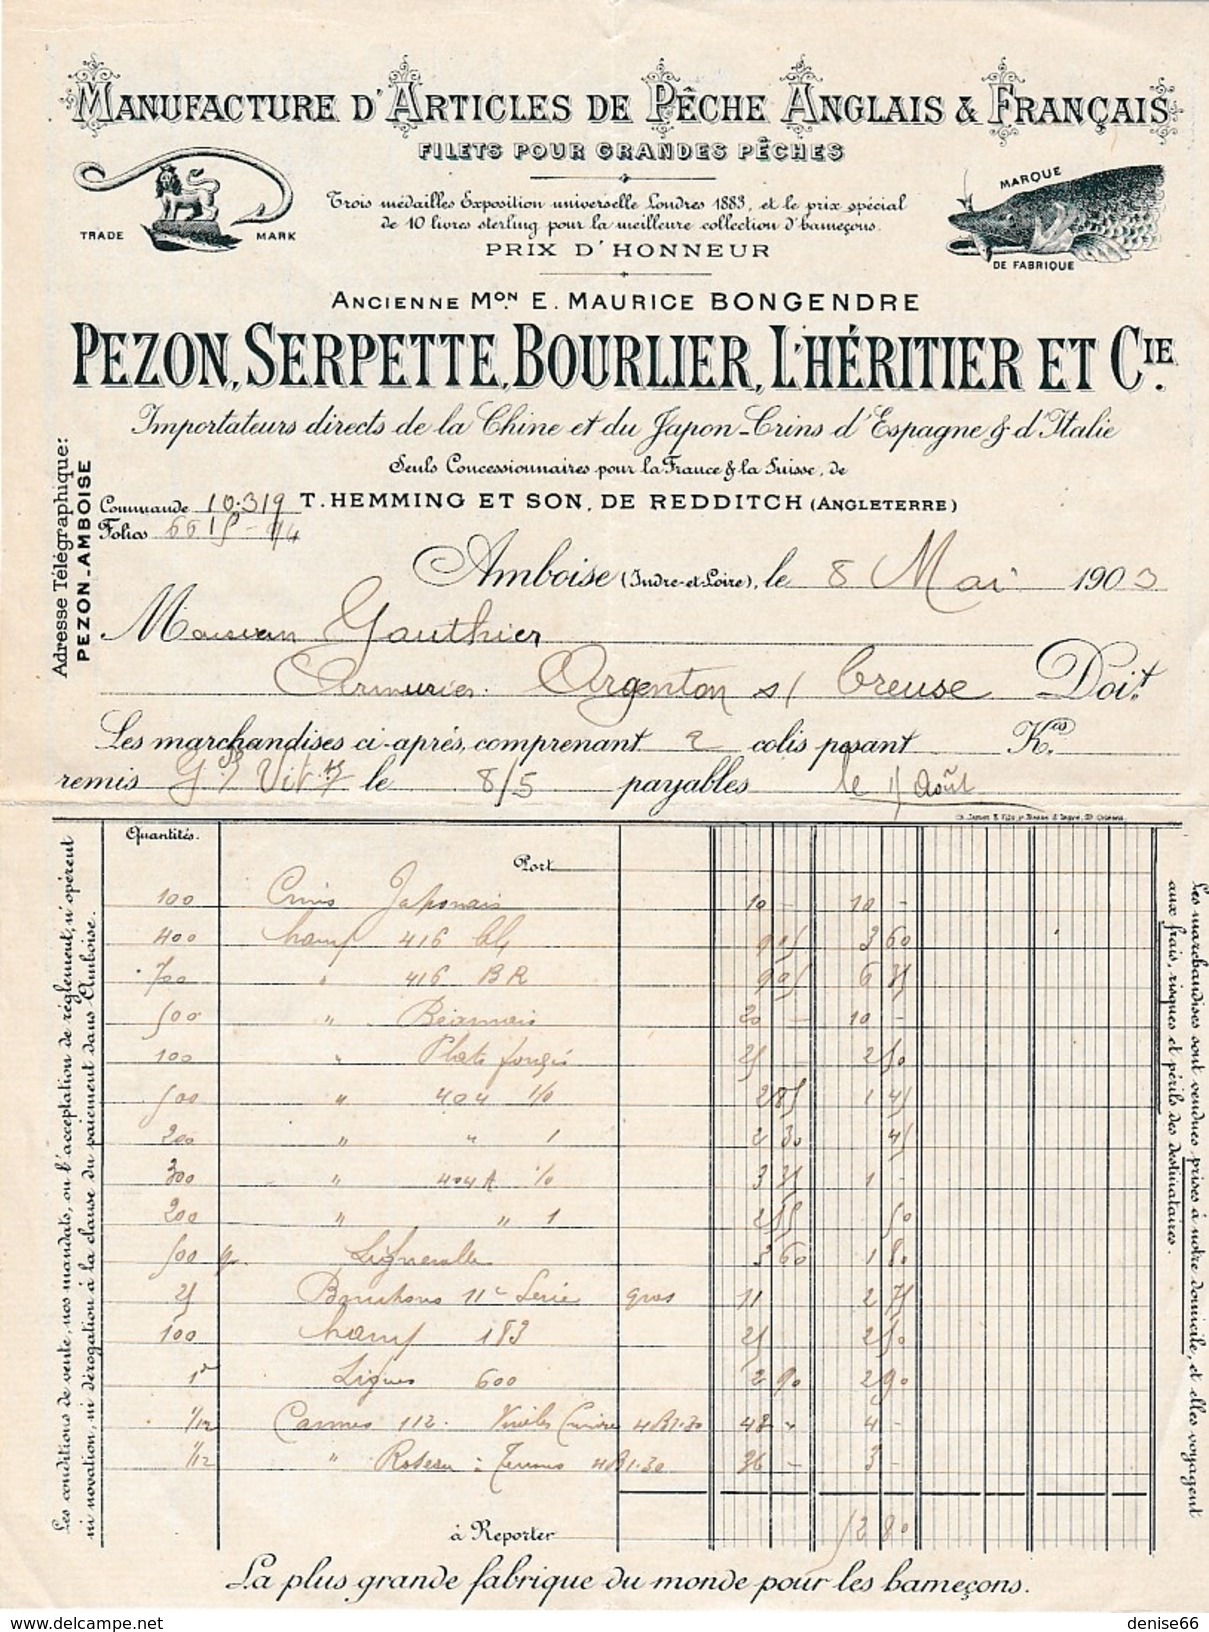 MANUFACTURE D'ARTICLES DE PÊCHE ANGLAIS & FRANÇAIS
FILETS POUR GRANDES PÊCHES
TRADE MARK
Trois médailles Exposition universelle Londres 1883, et le prix spécial
de 10 livres sterling pour la meilleure collection d'hameçons.
PRIX D'HONNEUR
MARQUE
DE FABRIQUE
ANCIENNE MON E. MAURICE BONGENDRE
PEZON, SERPETTE, BOURLIER, L'HÉRITIER ET CIE.
Importateurs directs de la Chine et du Japon - Crins d'Espagne & d'Italie
Seuls Concessionnaires pour la France & la Suisse, de
T. HEMMING ET SON, DE REDDITCH (ANGLETERRE)
Adresse Télégraphique:
PEZON-AMBOISE
Commande 10.319
Folios
Amboise (Indre-et-Loire), le 8 Mai 1903
Monsieur Gauthier
Armurier. Argenton s/ Creuse Doit
Les marchandises ci-après, comprenant 2 colis pesant Kos
remis le 8/5 payables le 1/ Août
Quantités.
Port
100 Crins Japonais 10 - 10 -
400 ham 416 90 3 60
700 " 416 BR 90 6 75
500 " Béarnais 20 - 10 -
100 " Plats forgés 25 - 2 50
500 " 404 1/0 2 85 1 45
200 " " 1 2 30 45
300 " 404A 1/0 3 35 1 -
200 " " 1 2 55 50
500 gr. Ligneralle 3 60 1 80
25 Bouchons 11c Série gros 11 2 75
100 ham 183 25 2 50
1 Lignes 600 2 90 2 90
1/12 Cannes 112. 4 B 1.30 48 " 4 -
1/12 " Roseau 4 B 1.30 36 - 3 -
à Reporter 52 80
Les conditions de vente, nos mandats, ou l'acceptation de réglement, n'opérent
ni novation, ni dérogation à la clause du paiement dans Amboise.
Les marchandises sont vendues prises à notre domicile, et elles voyagent
aux frais, risques et périls des destinataires.
La plus grande fabrique du monde pour les hameçons.
denise66